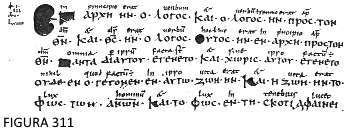 in principio erat uerbum et uerbum erat
ΕΝ ΑΡΧΗ ΗΝ Ο ΛΟΓΟC · ΚΑΙ · Ο · ΛΟΓΟC · ΗΝ · ΠΡΟC · ΤΟΝ
et erat uerbum hoc erat in principio
ΘΝ · ΚΑΙ · ΘC · ΗΝ · Ο · ΛΟΓΟC · ΟΥΤΟC · ΗΝ · ΕΝ · ΑΡΧΗ · ΠΡΟC ΤΟΝ
omnia ipsum facta et sine ipso factum
ΘΝ · ΠΑΝΤΑ ΔΙ ΑΥΤΟΥ · ΕΓΕΝΕΤΟ · ΚΑΙ ΧΩΡΙC · ΑΥΤΟΥ · ΕΓΕΝΕΤΟ
nihil quod factum in ipso uita erat et uita erat
ΟΥΔΕ ΕΝ · Ο · ΓΕΓΟΝΕΝ · ΕΝ ΑΥΤΩ · ΖΩΗ · ΗΝ · ΚΑΙ · Η ΖΩΗ · ΗΝ · ΤΟ
lux hominum et lux in tenebris lucet
ΦΩC · ΤΩΝ · ΑΝΩΝ · ΚΑΙ · ΤΟ · ΦΩC · ΕΝ · ΤΗ · CΚΟΤΙΑ ΦΑΙΝΕΙ
FIGURA 311